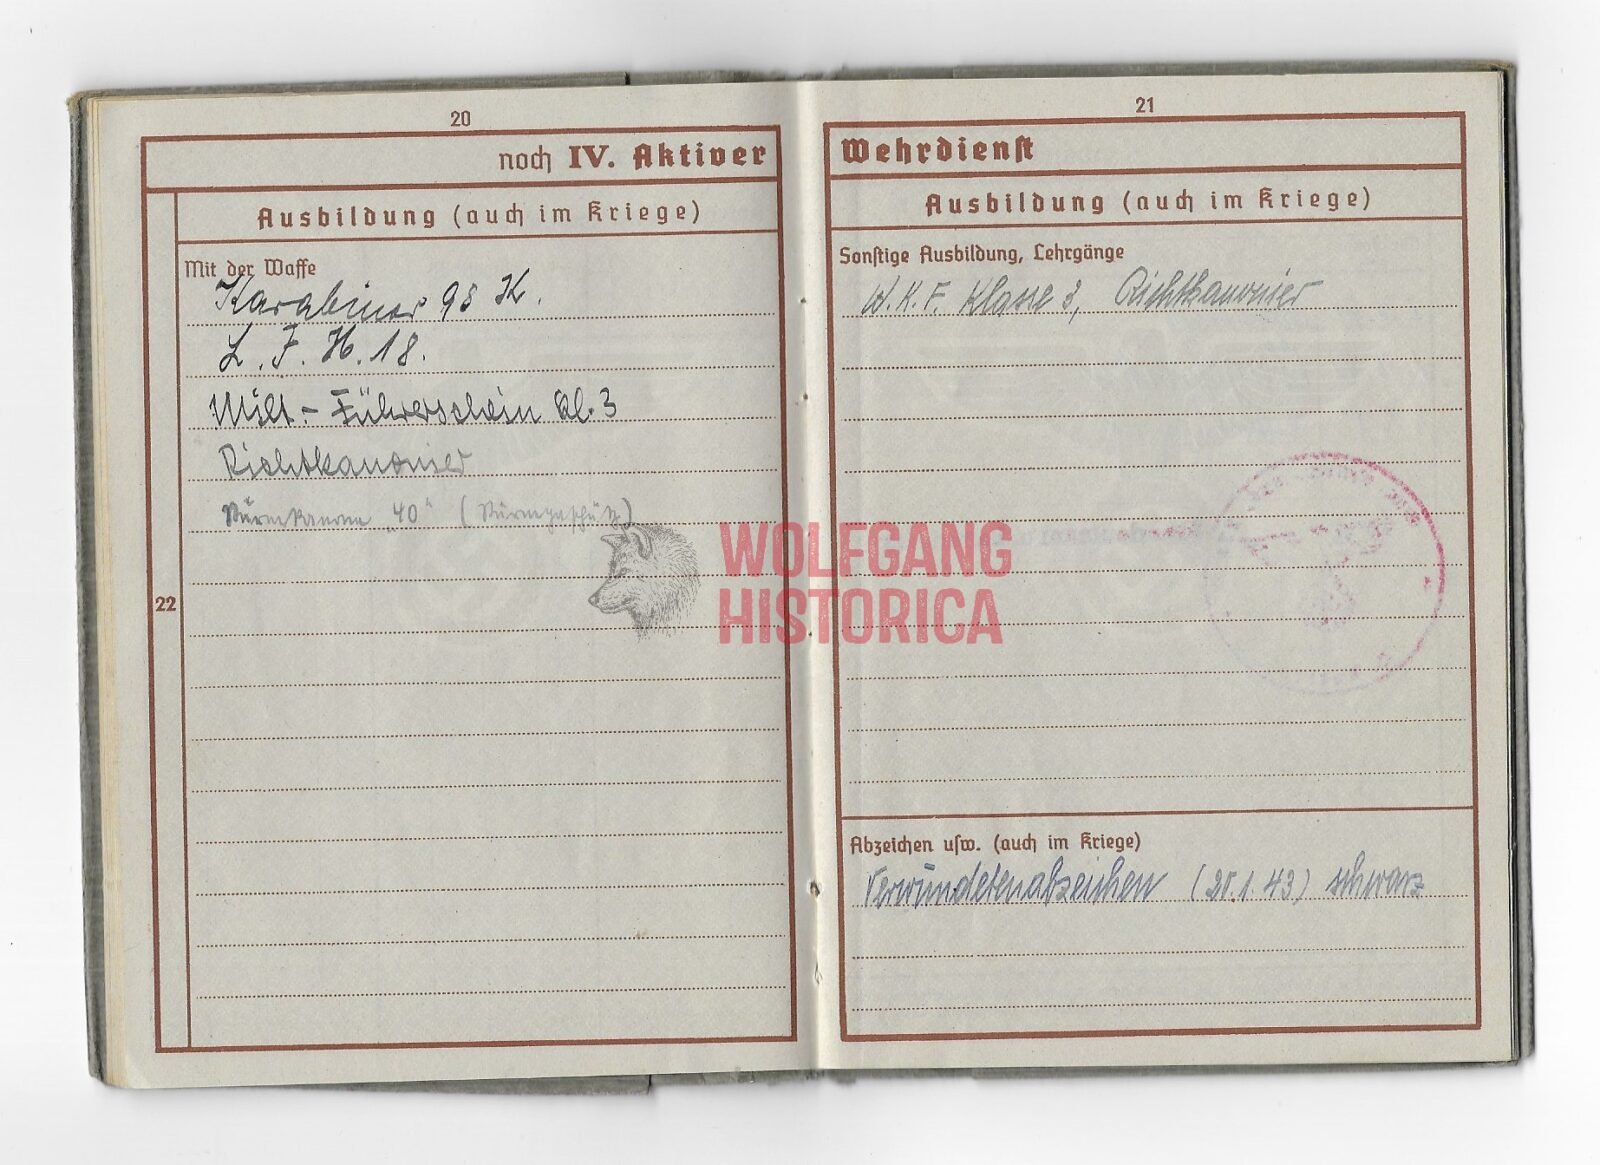 20
noch IV. Aktiver
Ausbildung (auch im Kriege)
Mit der Waffe
Karabiner 98 K.
L. F. H. 18.
Milt.- Führerschein Kl. 3
Richtkanonier
Sturmkanone „40“ (Sturmgeschütz)
22
21
Wehrdienst
Ausbildung (auch im Kriege)
Sonstige Ausbildung, Lehrgänge
W. K. F. Klasse 3, Richtkanonier
Abzeichen usw. (auch im Kriege)
Verwundetenabzeichen (20.1.43) schwarz
WOLFGANG
HISTORICA